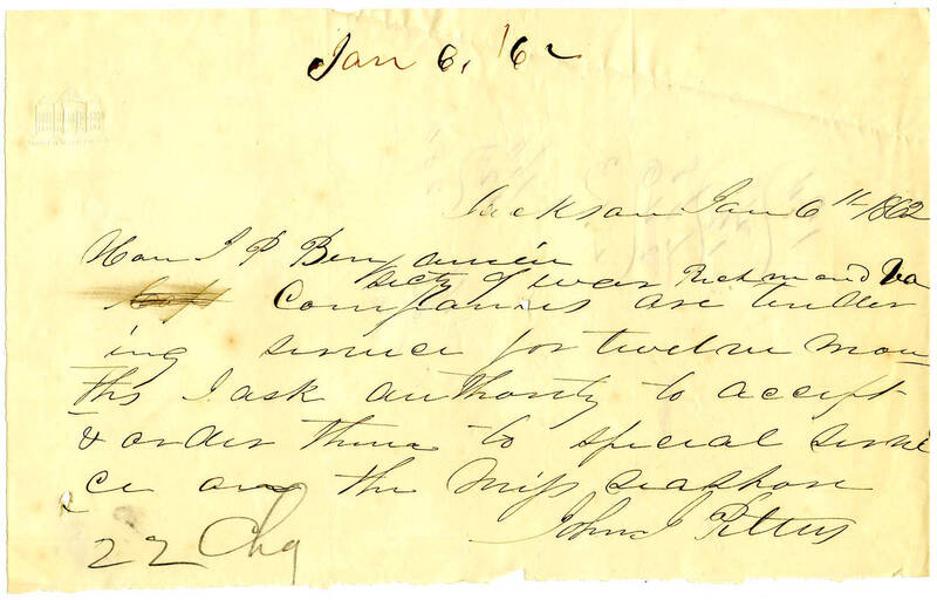 Jan 6, '62
Jackson Jan 6th 1862
Hon J P Benjamin
Secty of war Richmond Va
Companies are tender
ing service for twelve mon
ths I ask authority to accept
& order them to special servi
ce on the Miss seashore
John J Pettus
22 Chg